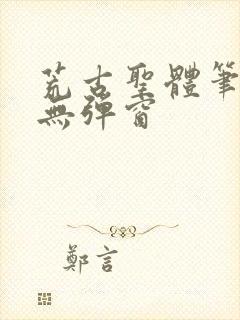 荒古聖體筆
無彈窗
鄭言